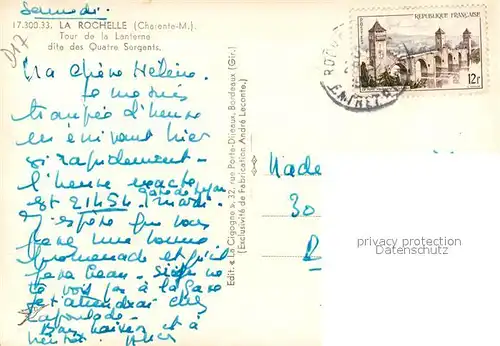 Samedi.
17.300.33. LA ROCHELLE (Charente-M.).
Tour de la Lanterne
dite des Quatre Sergents.
017
Ma chère Hélène.
Je me suis
trompée d'heure
en écrivant hier
si rapidement -
l'heure exacte
Gare de Lyon
est 21h54 (mardi.
J'espère que vous
ferez une bonne
promenade et qu'il
fera beau. Si je ne
te vois pas à la gare
je t'attendrai chez
Bons baisers et à
bientôt.
Edit. « La Cigogne », 32, rue Porte-Dijeaux, Bordeaux (Gir.)
(Exclusivité de Fabrication André Leconte.)
POSTES
REPUBLIQUE FRANÇAISE
12f
Made
30
privacy protection
Datenschutz